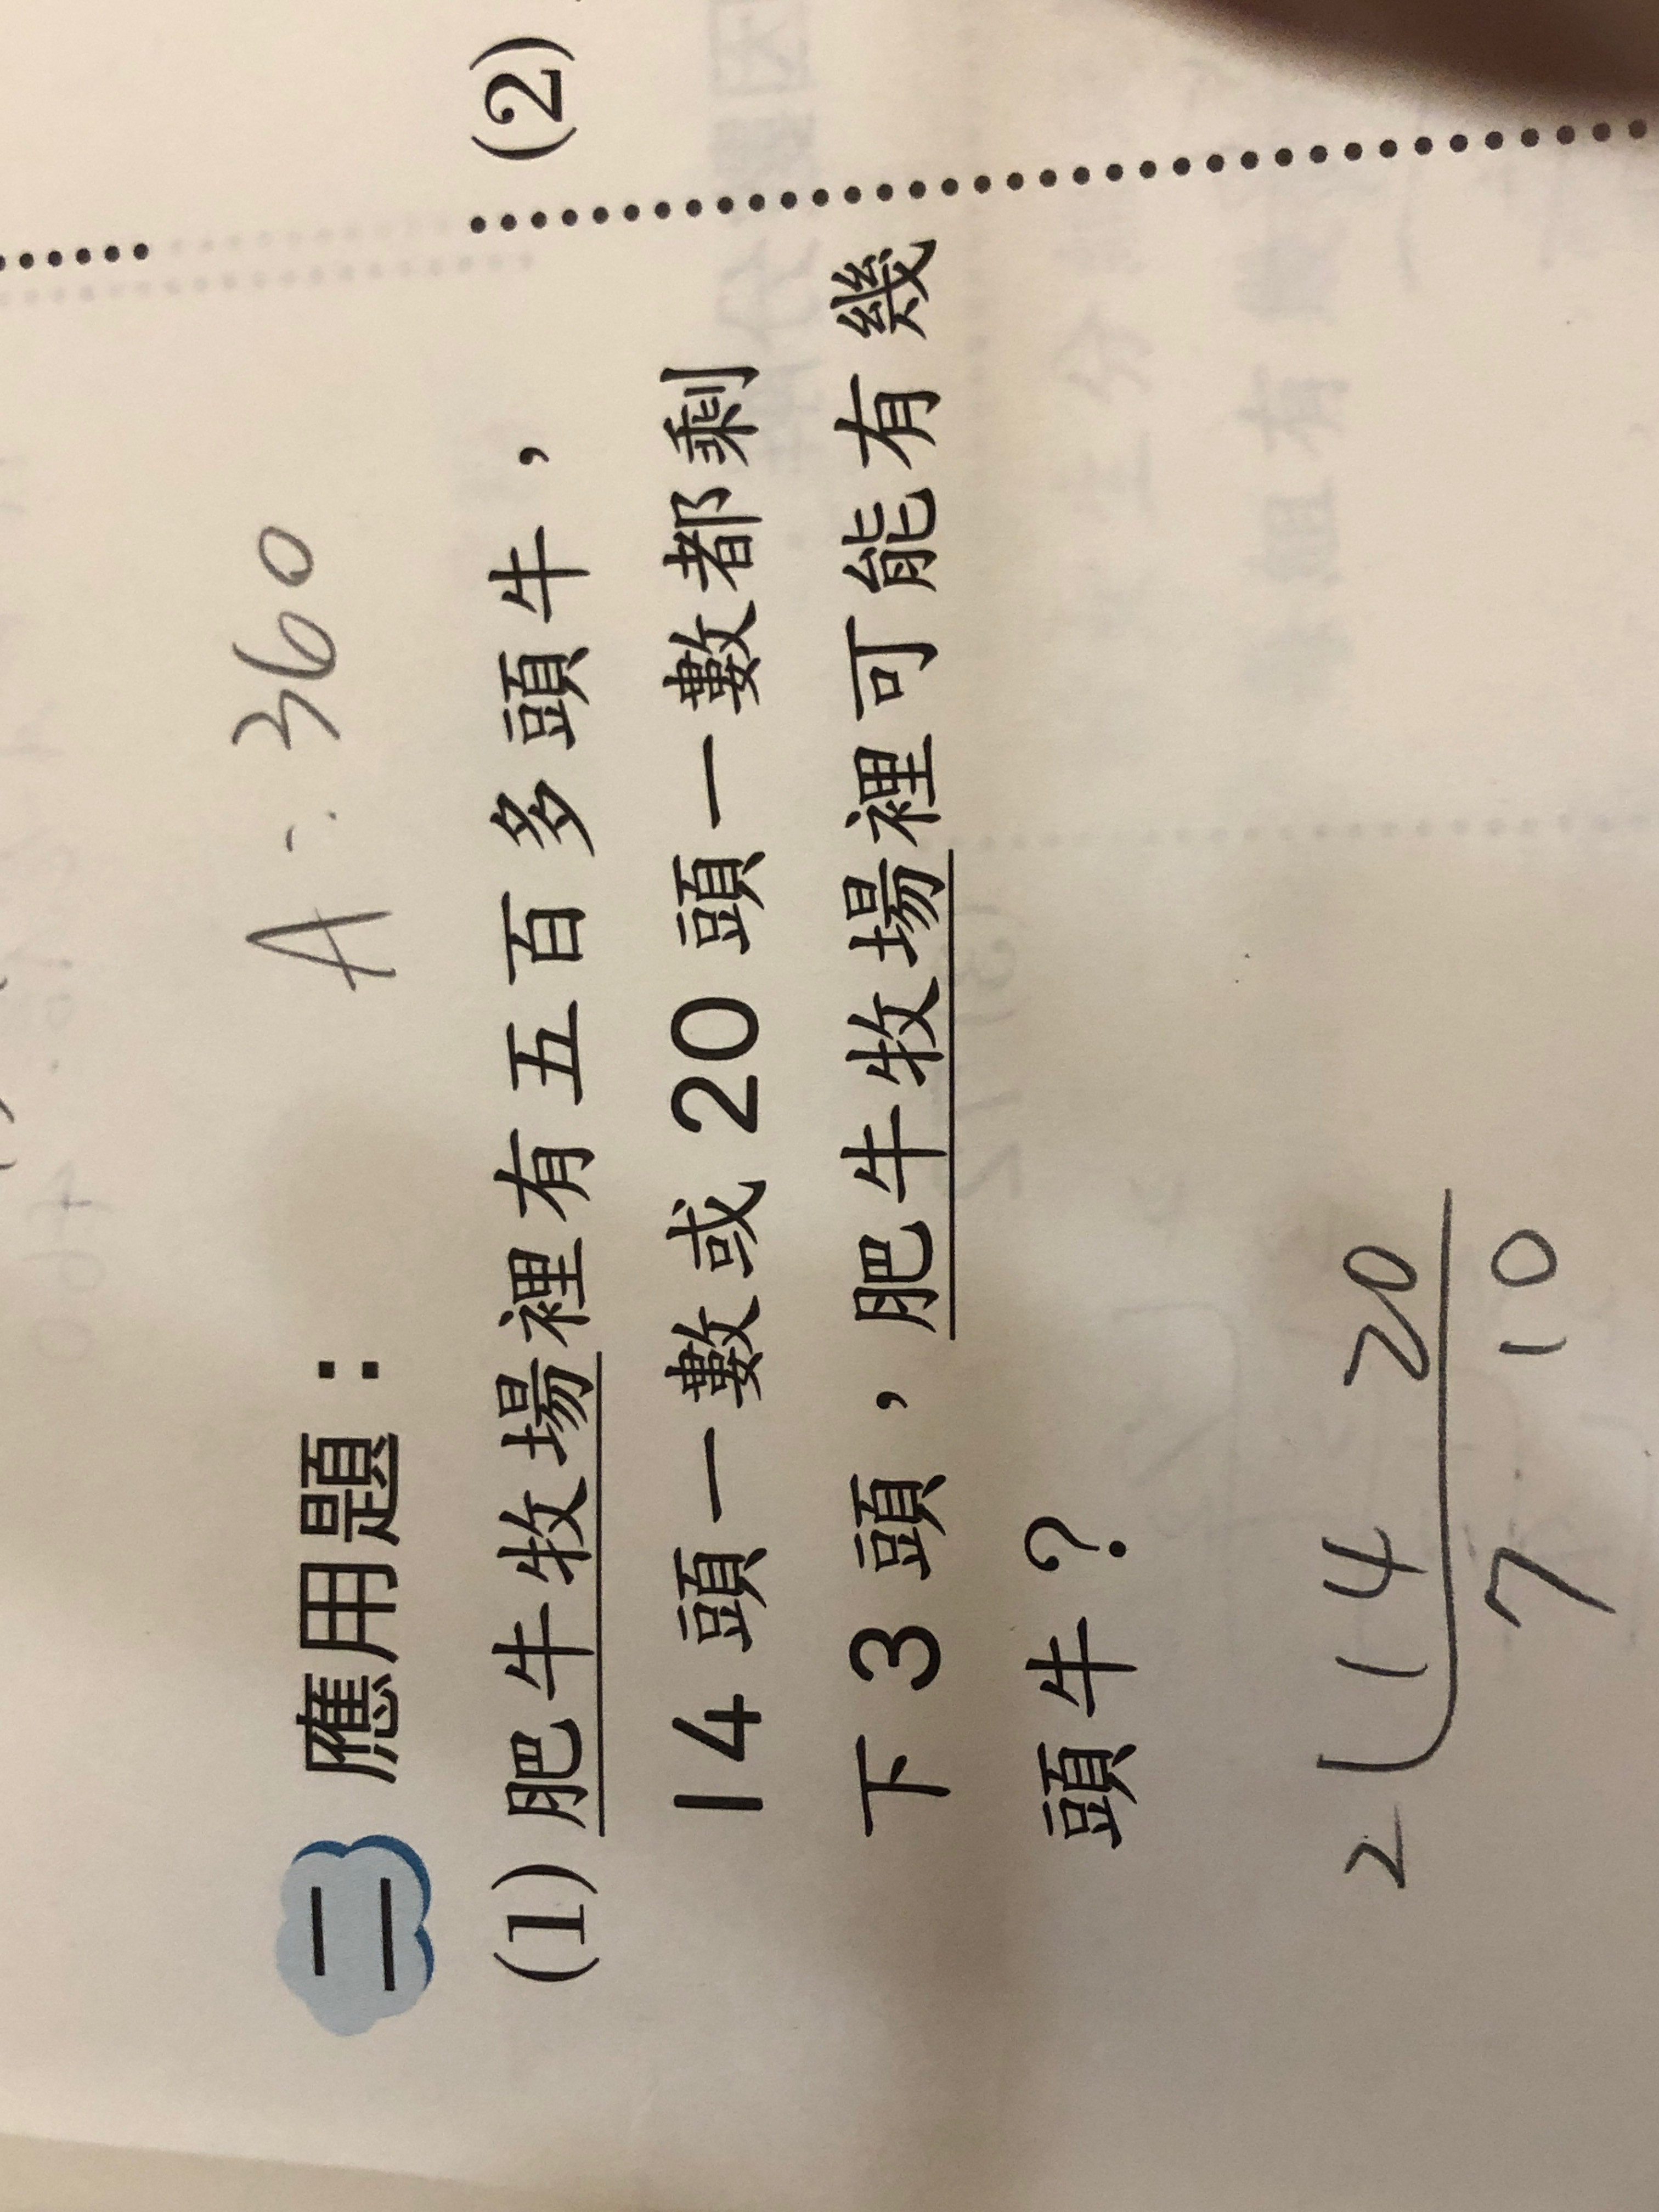 A: 360
二 應用題：
(1) 肥牛牧場裡有五百多頭牛，
14 頭一數或 20 頭一數都剩
下 3 頭，肥牛牧場裡可能有幾
頭牛？
2 14 20
7 10
(2)